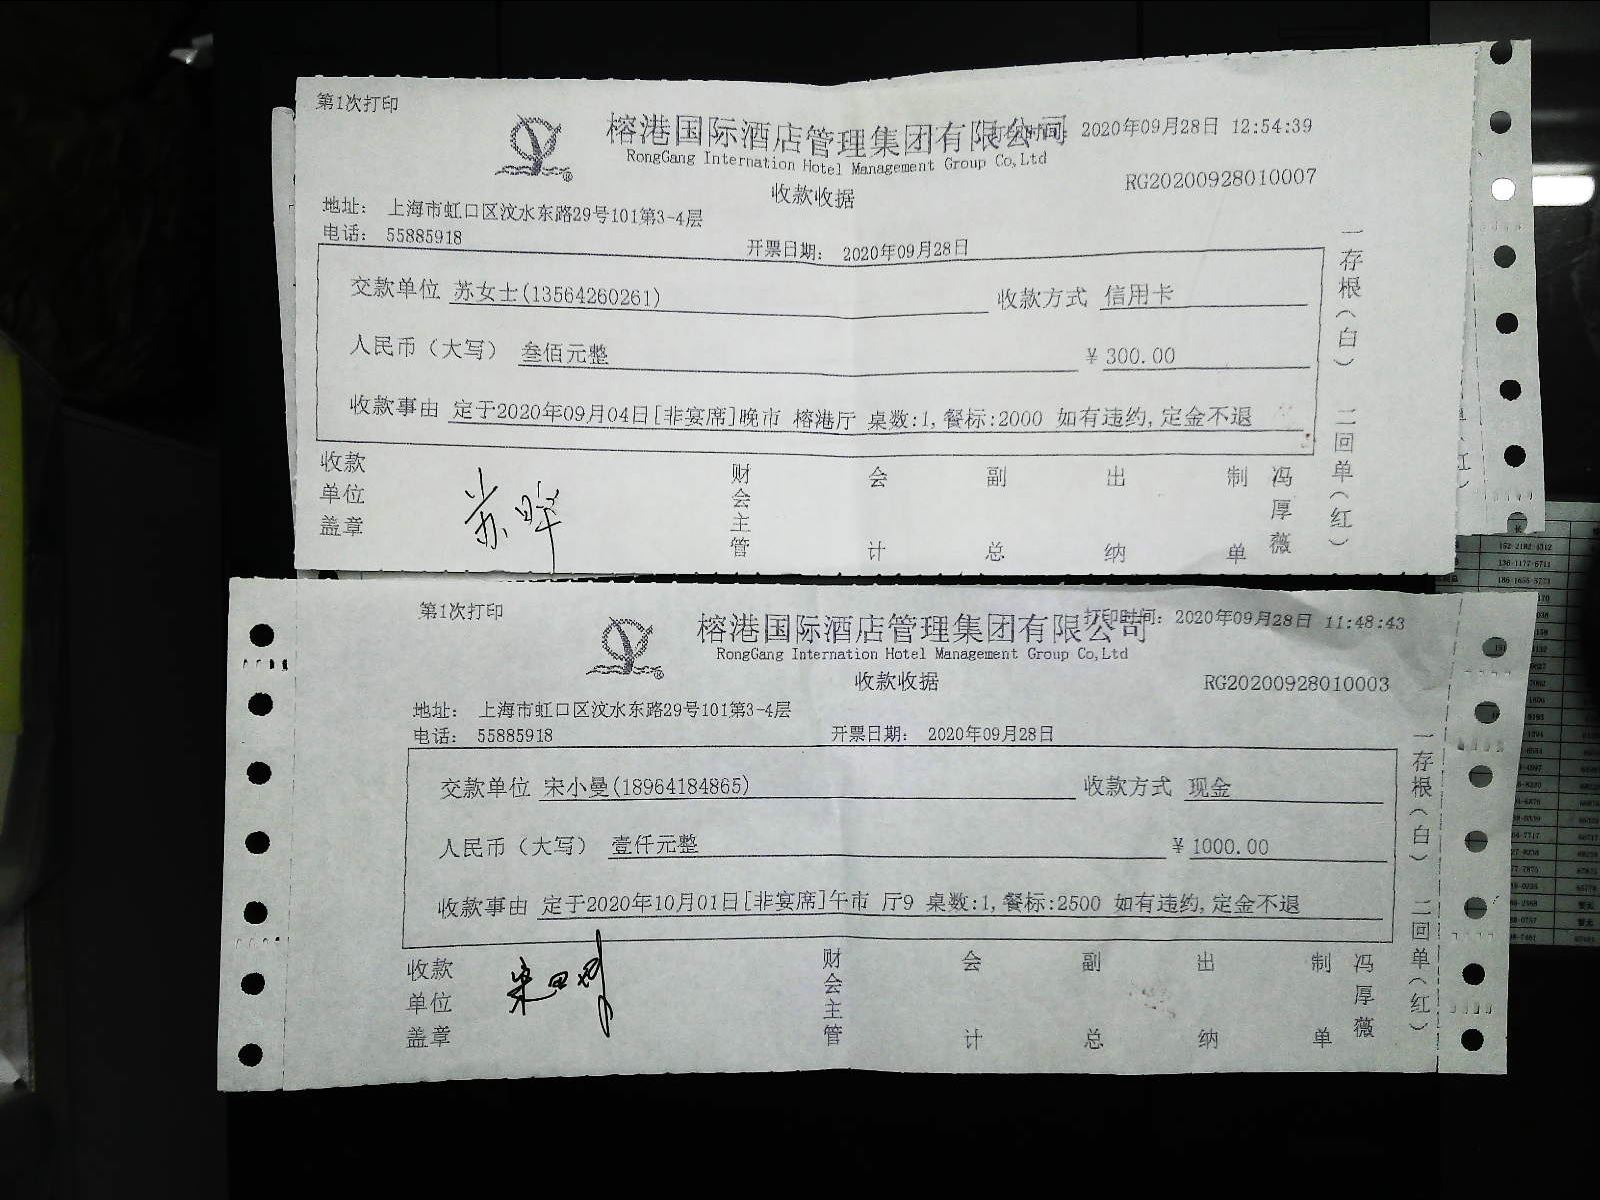 第1次打印
榕港国际酒店管理集团有限公司
打印时间: 2020年09月28日 12:54:39
RongGang Internation Hotel Management Group Co,Ltd
收款收据
RG20200928010007
地址: 上海市虹口区汶水东路29号101第3-4层
电话: 55885918
开票日期: 2020年09月28日
交款单位 苏女士(13564260261) 收款方式 信用卡
人民币（大写） 叁佰元整 ¥ 300.00
收款事由 定于2020年09月04日[非宴席]晚市 榕港厅 桌数:1,餐标:2000 如有违约,定金不退
收款单位盖章 财会主管 会计 副总 出纳 制单 冯厚薇
一存根(白) 二回单(红)
第1次打印
榕港国际酒店管理集团有限公司
打印时间: 2020年09月28日 11:48:43
RongGang Internation Hotel Management Group Co,Ltd
收款收据
RG20200928010003
地址: 上海市虹口区汶水东路29号101第3-4层
电话: 55885918
开票日期: 2020年09月28日
交款单位 宋小曼(18964184865) 收款方式 现金
人民币（大写） 壹仟元整 ¥ 1000.00
收款事由 定于2020年10月01日[非宴席]午市 厅9 桌数:1,餐标:2500 如有违约,定金不退
收款单位盖章 财会主管 会计 副总 出纳 制单 冯厚薇
一存根(白) 二回单(红)